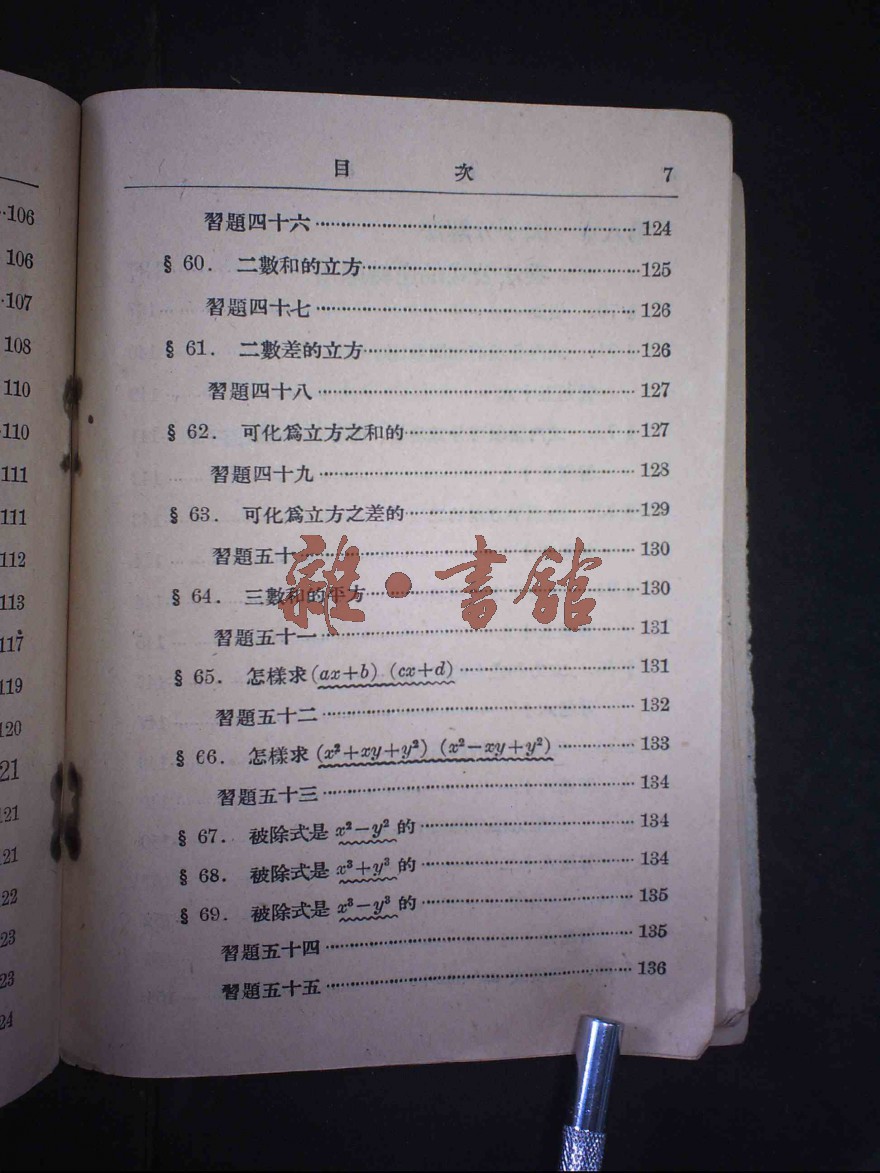 目 次 7
習題四十六 124
§ 60. 二數和的立方 125
習題四十七 126
§ 61. 二數差的立方 126
習題四十八 127
§ 62. 可化爲立方之和的 127
習題四十九 128
§ 63. 可化爲立方之差的 129
習題五十 130
§ 64. 三數和的平方 130
習題五十一 131
§ 65. 怎樣求(ax+b) (cx+d) 131
習題五十二 132
§ 66. 怎樣求(x²+xy+y²) (x²−xy+y²) 133
習題五十三 134
§ 67. 被除式是 x²−y² 的 134
§ 68. 被除式是 x³+y³ 的 134
§ 69. 被除式是 x³−y³ 的 135
習題五十四 135
習題五十五 136
雜·書館
106
106
107
108
110
110
111
111
112
113
117
119
120
121
121
121
122
123
123
124